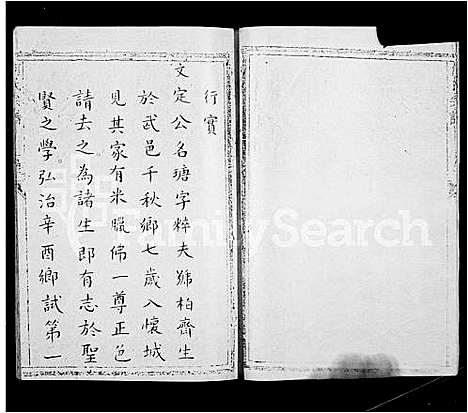 行實
文定公名瑭字粹夫號柏齋生
於武邑千秋鄉七歲入懷城
見其家有米臘佛一尊正色
請去之為諸生即有志於聖
賢之學弘治辛酉鄉試第一
FamilySearch